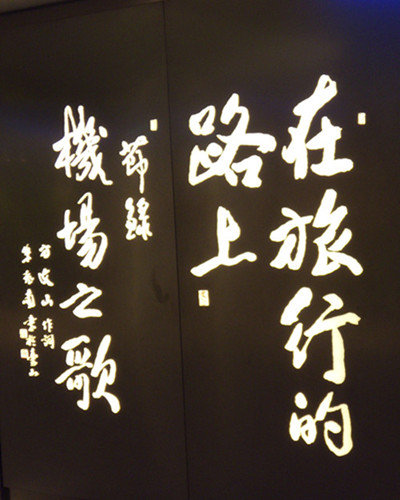 在旅行的
路上
節錄
機場之歌
方文山作詞